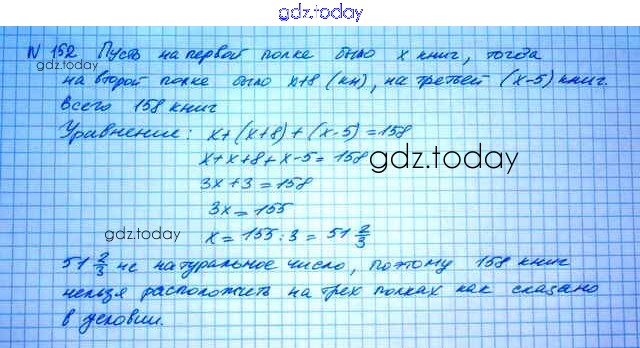 gdz.today
N 152 Пусть на первой полке было x книг, тогда
gdz.today
на второй полке было x+8 (кн), на третьей (x-5) книг.
Всего 158 книг
Уравнение: x+(x+8)+(x-5)=158
x+x+8+x-5=158
gdz.today
3x+3=158
3x=155
gdz.today
x=155:3=51 2/3
51 2/3 не натуральное число, поэтому 158 книг
нельзя расположить на трех полках как сказано
в условии.